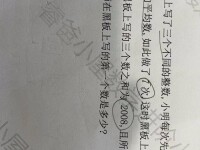 上写了三个不同的整数, 小明每次先
平均数, 如此做了7次, 这时黑板上
板上写的三个数之和为2008, 且所
在黑板上写的第一个数是多少?